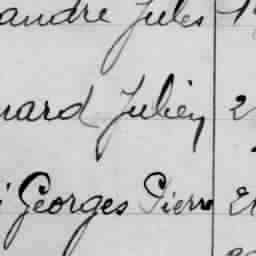 andre Jules 1
nard Julien 2
i Georges Pierre